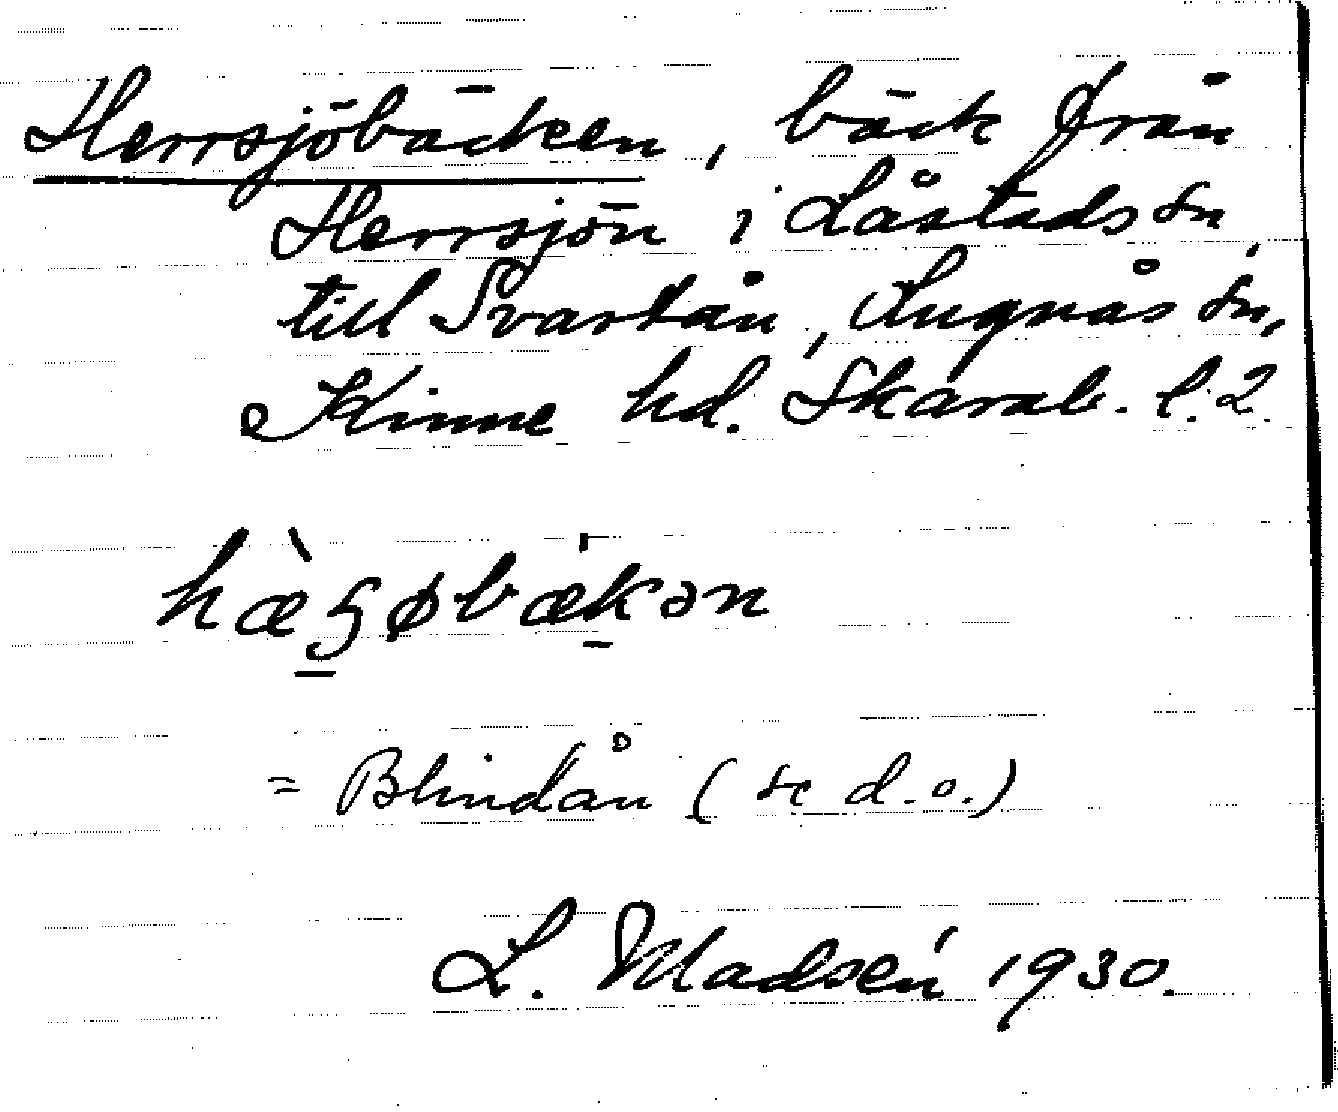 Herrsjöbäcken, bäck från
Herrsjön i Låstads sn,
till Svartån, Lugnås sn,
Kinne hd. Skarab. l. 2.
= Blindån (se d.o.)
L. Madsén 1930.